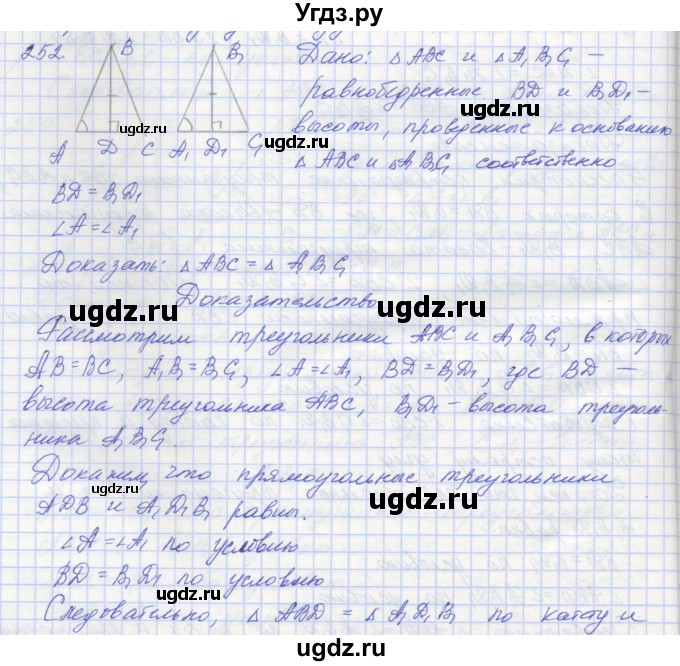 Угдз.ру
252 B B₁ Дано: △ ABC и △ A₁B₁C₁ —
равнобедренные BD и B₁D₁ —
ugdz.ru
ugdz.ru
высоты, проведенные к основанию
A D C A₁ D₁ C₁ △ ABC и △ A₁B₁C₁ соответственно
BD = B₁D₁
ugdz.ru
∠A = ∠A₁
Доказать: △ ABC = △ A₁B₁C₁
Доказательство
ugdz.ru
ugdz.ru
Рассмотрим треугольники ABC и A₁B₁C₁, в которых
AB = BC, A₁B₁ = B₁C₁, ∠A = ∠A₁, BD = B₁D₁, где BD —
ugdz.ru
высота треугольника ABC, B₁D₁ – высота треуголь-
ника A₁B₁C₁.
Докажем, что прямоугольные треугольники
ugdz.ru
ugdz.ru
ADB и A₁D₁B₁ равны.
∠A = ∠A₁ по условию
BD = B₁D₁ по условию
ugdz.ru
Следовательно, △ ABD = △ A₁D₁B₁ по катету и
ugdz.ru
ugdz.ru